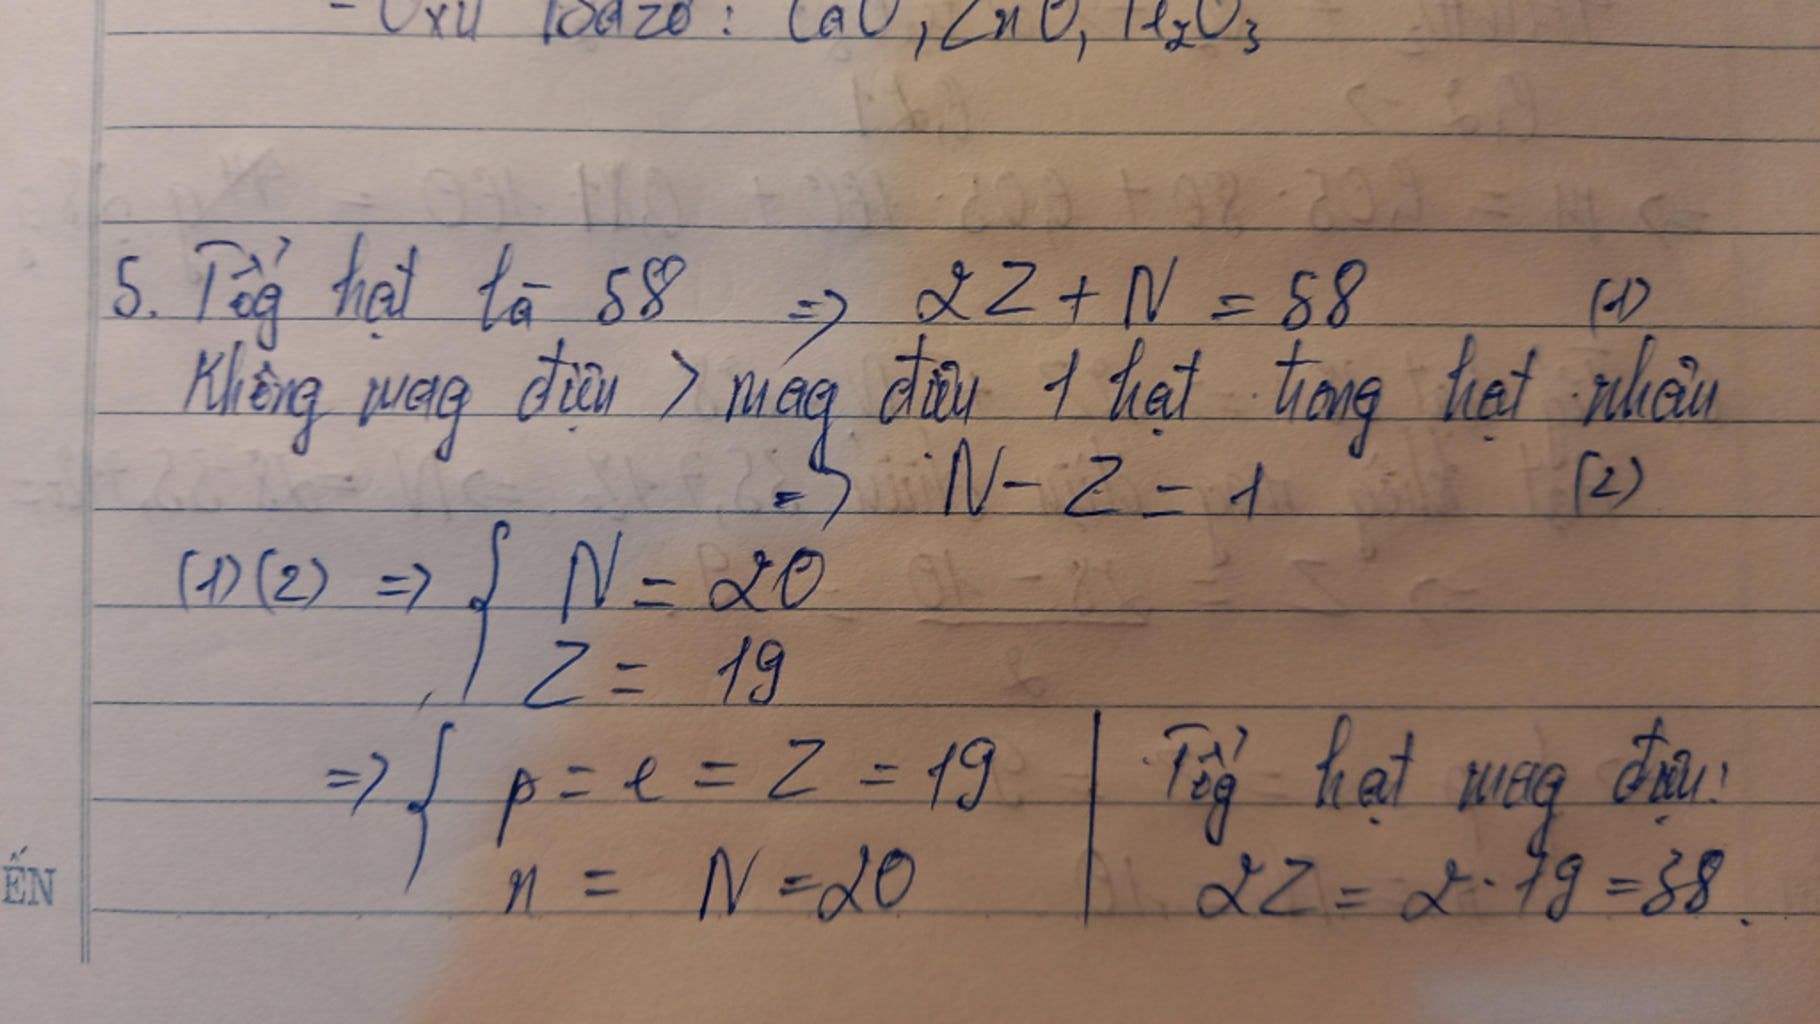 - Oxit bazo: CaO, ZnO, Fe2O3
5. Tổg hạt là 58 => 2Z + N = 58 (1)
Không mag điện > mag điện 1 hạt trong hạt nhân
=> N - Z = 1 (2)
(1)(2) => { N = 20
Z = 19
=> { p = e = Z = 19
n = N = 20
Tổg hạt mag điện:
2Z = 2.19 = 38.
ẾN